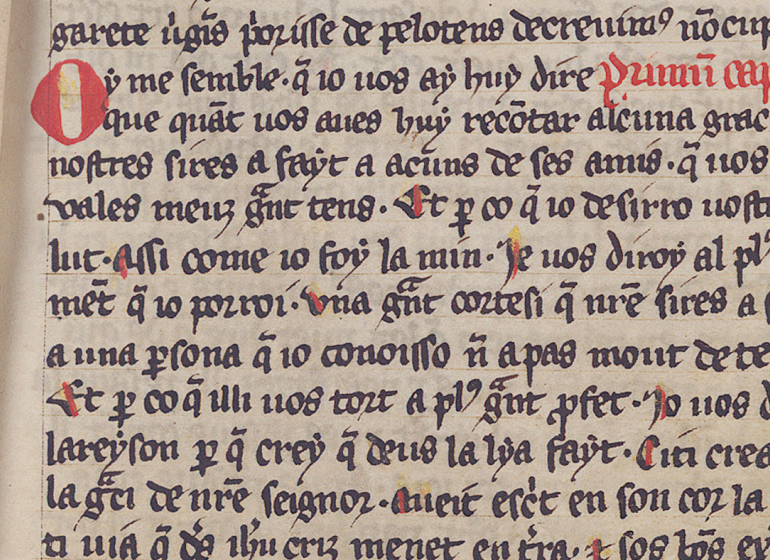 garete ũgĩs p̃orisse de pelotens decreuimꝰ nõ cup
Oy me semble · q̃ io uos ay huy dire Primũ cap
que quãt uos aues huy recõtar alcuna grac
nostres sires a fayt a acuns de ses amis · q̃ uos
vales meuz gͣnt tens · Et ꝑ co q̃ io desirro uost
lut · Assi come io foy la min · Je uos diroy al plꝰ
mẽt q̃ io porroi · Vna gͣnt cortesi q̃ nrẽ sires a
a una ꝑsona q̃ io conoisso ñ a pas mout de te
Et ꝑ co q̃ illi uos tort a plꝰ gͣnt ꝓfet · Jo uos d
la reyson ꝑ q̃ crey q̃ deus la lya fayt · Citi crea
la gͣci de nrẽ seignor · Aueit esc̃t en son cor la
ti uia q̃ dꝰs ihũ criz menet en tr̃ra · ⁊ sos bõs ex